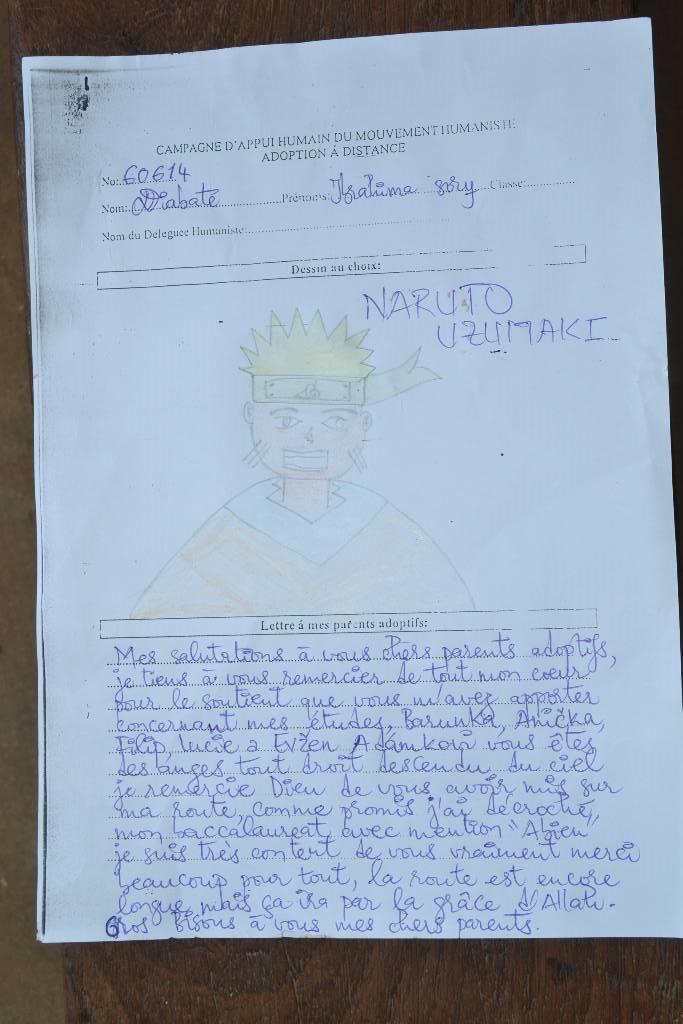 CAMPAGNE D'APPUI HUMAIN DU MOUVEMENT HUMANISTE
ADOPTION À DISTANCE
No: 60614
Nom: Diabaté Prénoms: Ibrahima Sory Classe:
Nom du Deleguée Humaniste:
Dessin au choix:
NARUTO
UZUMAKI
Lettre á mes parents adoptifs:
Mes salutations à vous chers parents adoptifs,
je tiens à vous remercier de tout mon coeur
pour le soutient que vous m'avez apporter
concernant mes études, Barunka, Anička,
Filip, Lucie a Evžen Adámkovi vous êtes
des anges tout droit descendu du ciel
je remercie Dieu de vous avoir mis sur
ma route, comme promis j'ai décroché,
mon baccalaureat avec mention "Abien"
je suis très content de vous vraiment merci
beaucoup pour tout, la route est encore
longue mais ça ira par la grâce d'Allah.
Gros bisous à vous mes chers parents.